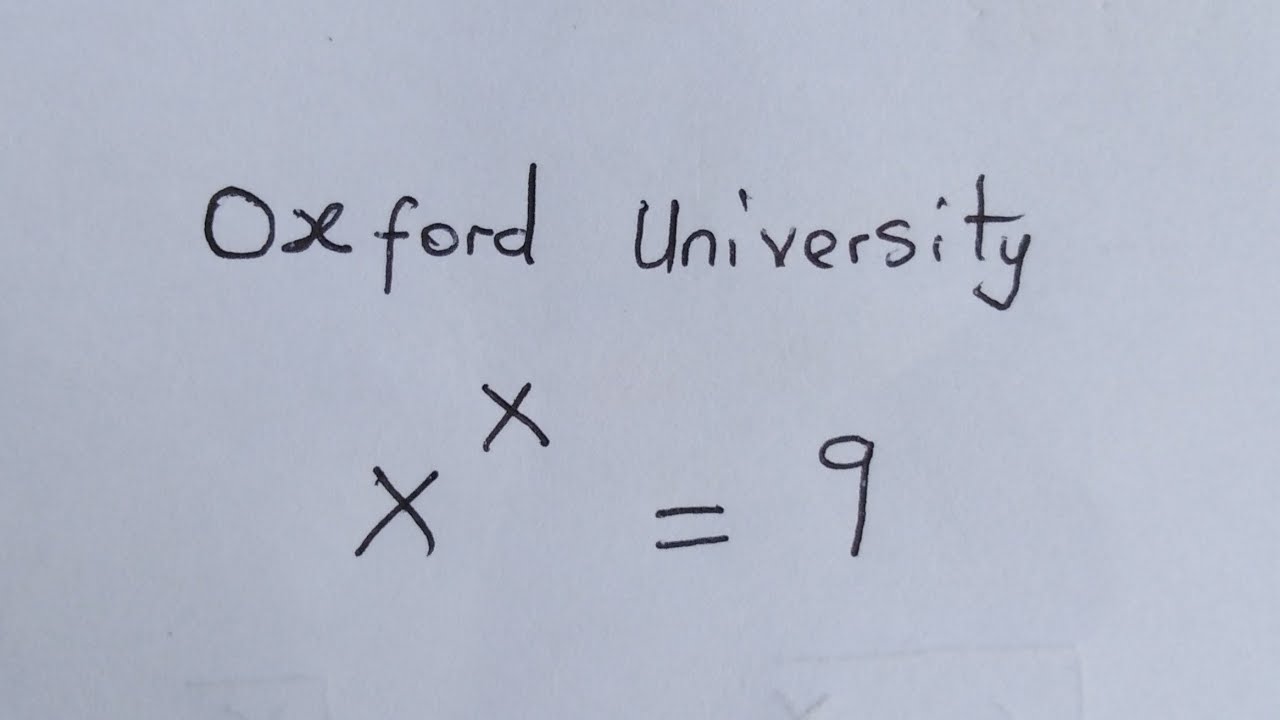 Oxford University
x^x = 9